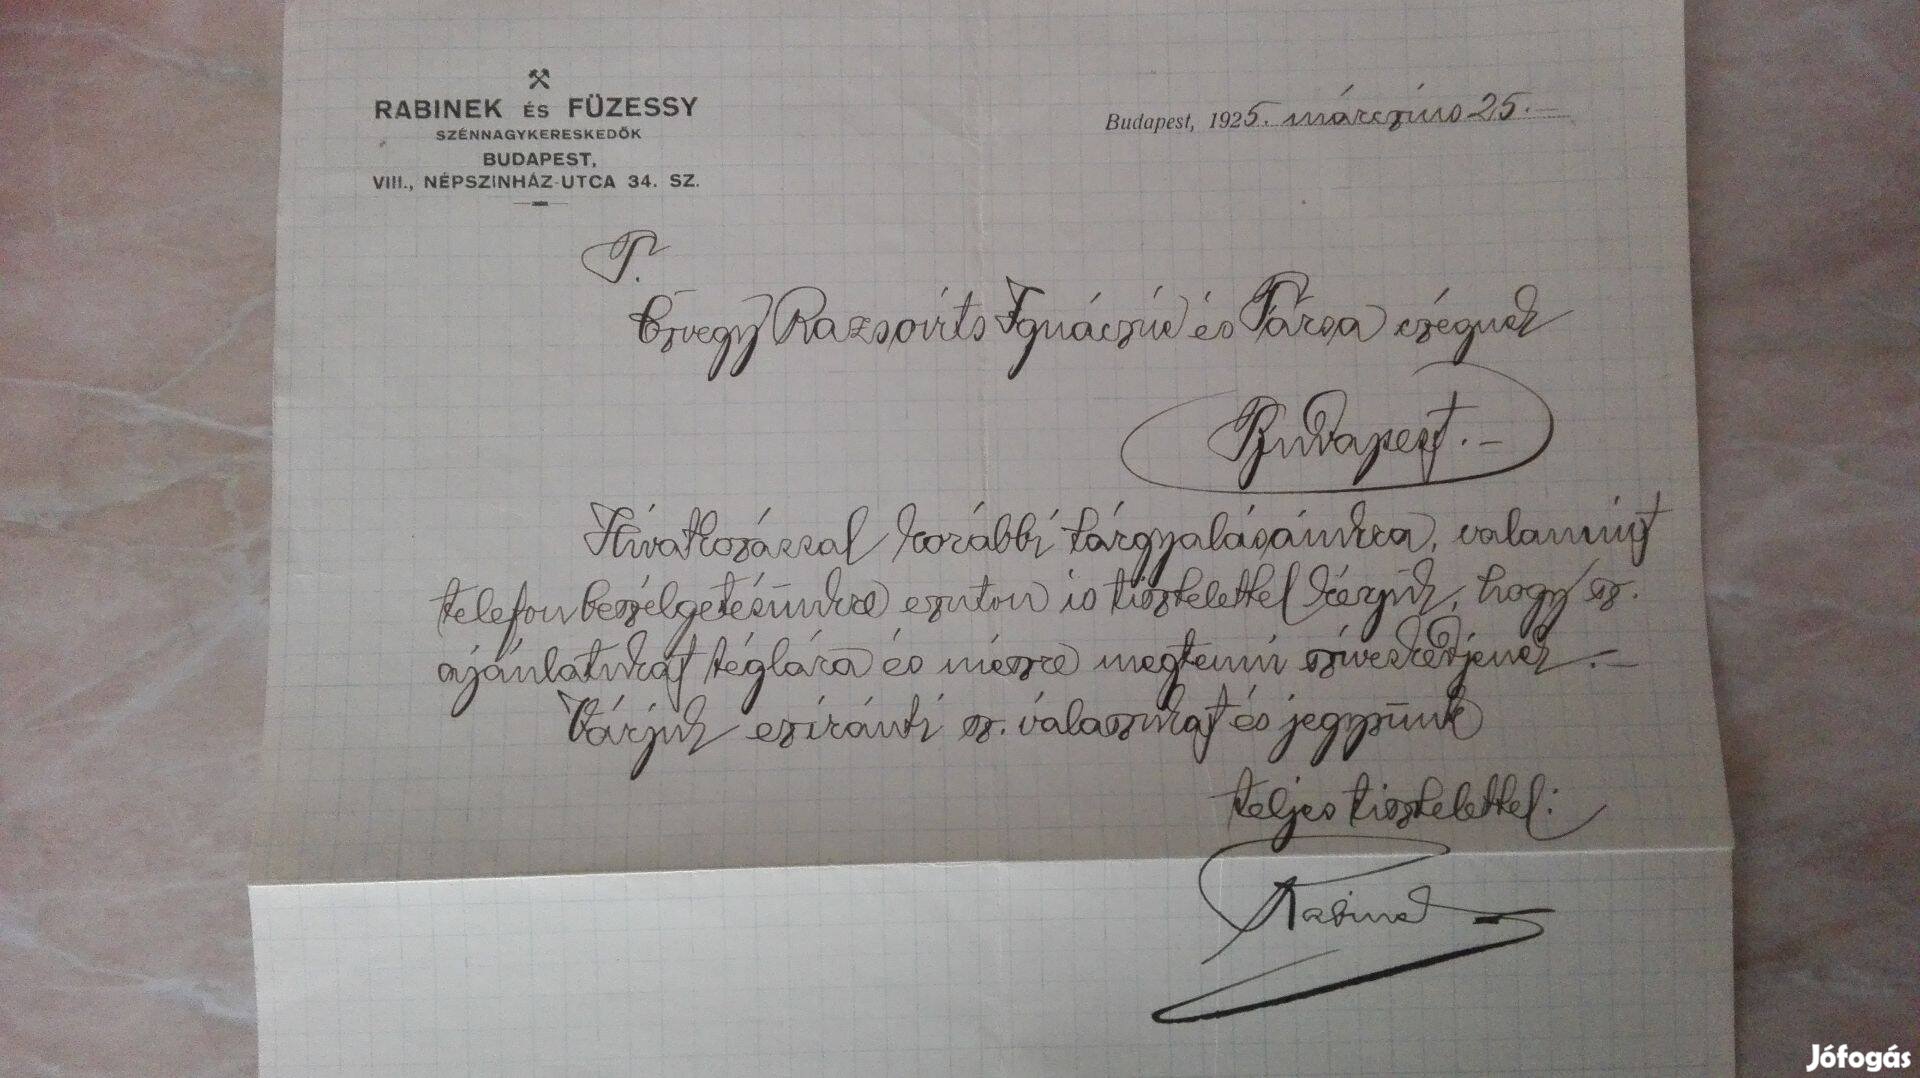 RABINEK ÉS FÜZESSY
SZÉNNAGYKERESKEDŐK
BUDAPEST,
VIII., NÉPSZINHÁZ-UTCA 34. SZ.
Budapest, 1925. márczius 25.-
T.
Özvegy Razsovits Ignáczné és Társa czégnek
Budapest.-
Hivatkozással korábbi tárgyalásainkra, valamint
telefonbeszélgetésünkre ezuton is tisztelettel kérjük, hogy sz.
ajánlatukat téglára és mészre megtenni sziveskedjenek.-
Várjuk eziránti sz. válaszukat és jegyzünk
teljes tisztelettel:
Rabinek
Jófogás